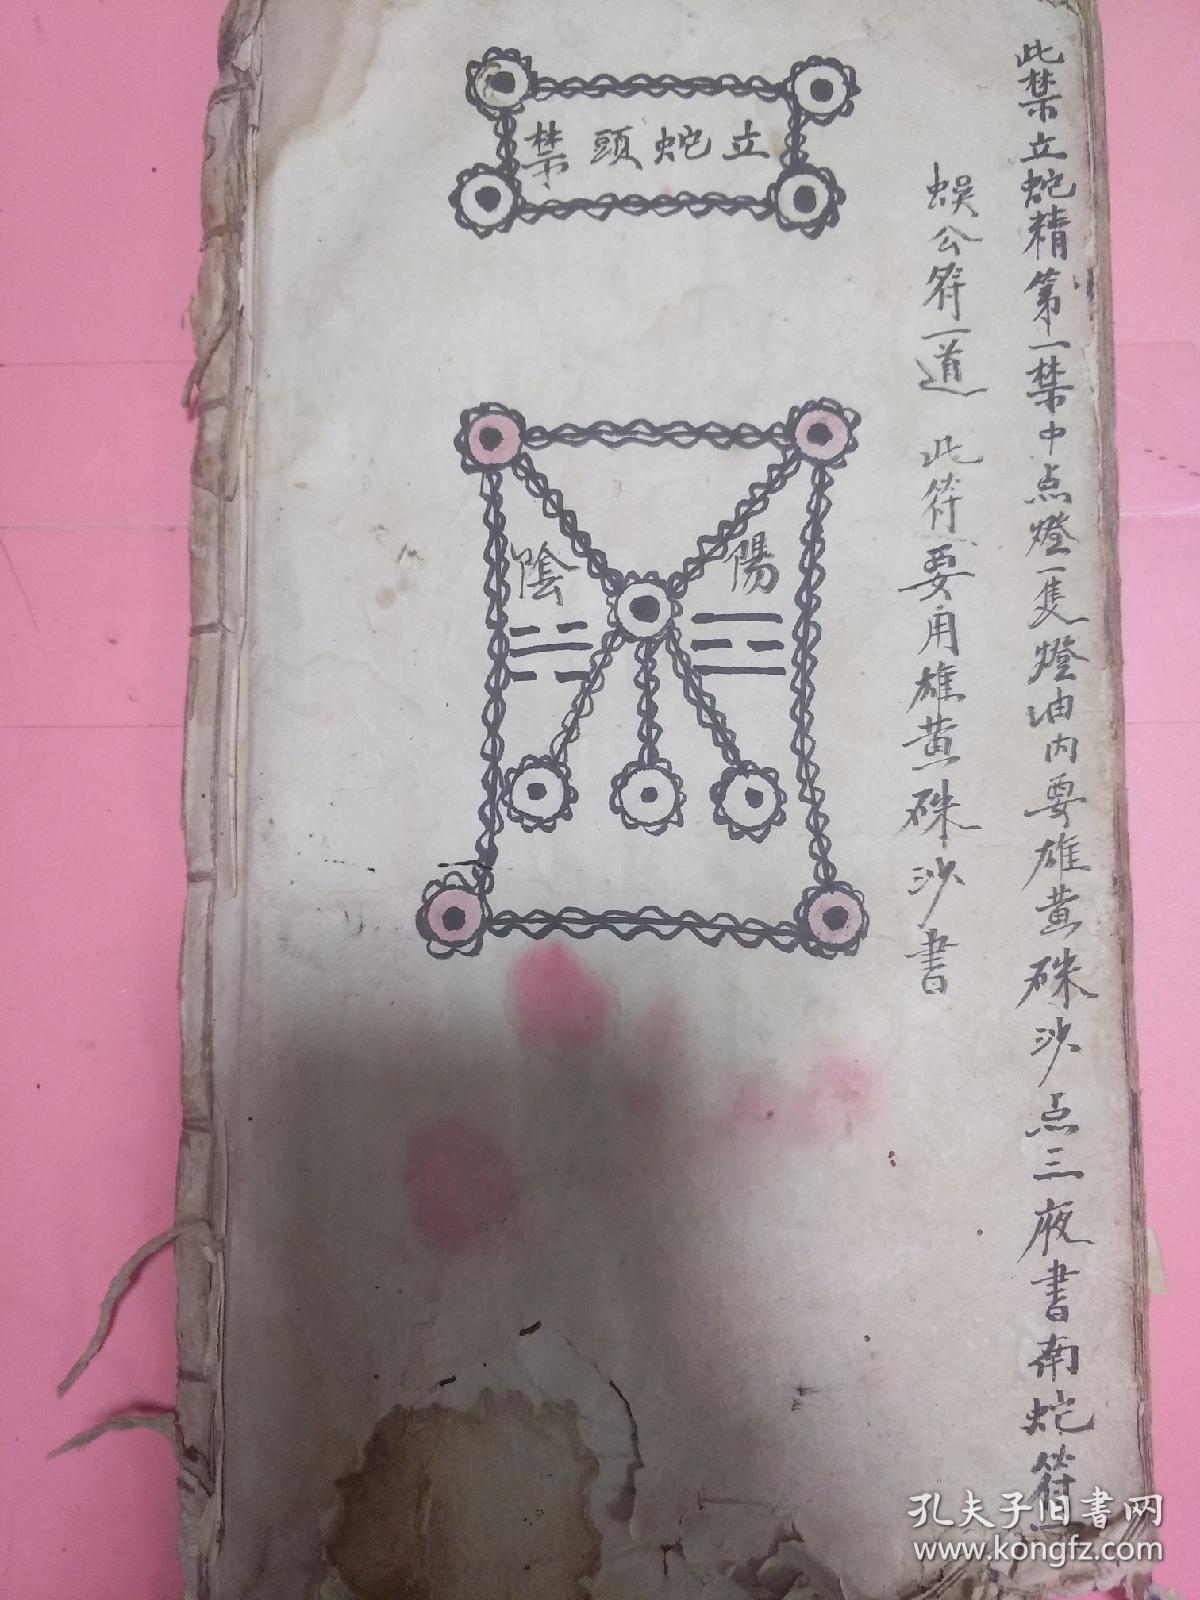 此禁立蛇精第一禁中点燈一隻燈油内要雄黄硃沙点三夜書南蛇符一
蜈公符一道 此符要用雄黄硃沙書
立蛇頭禁
陽
陰
孔夫子旧书网
www.kongfz.com